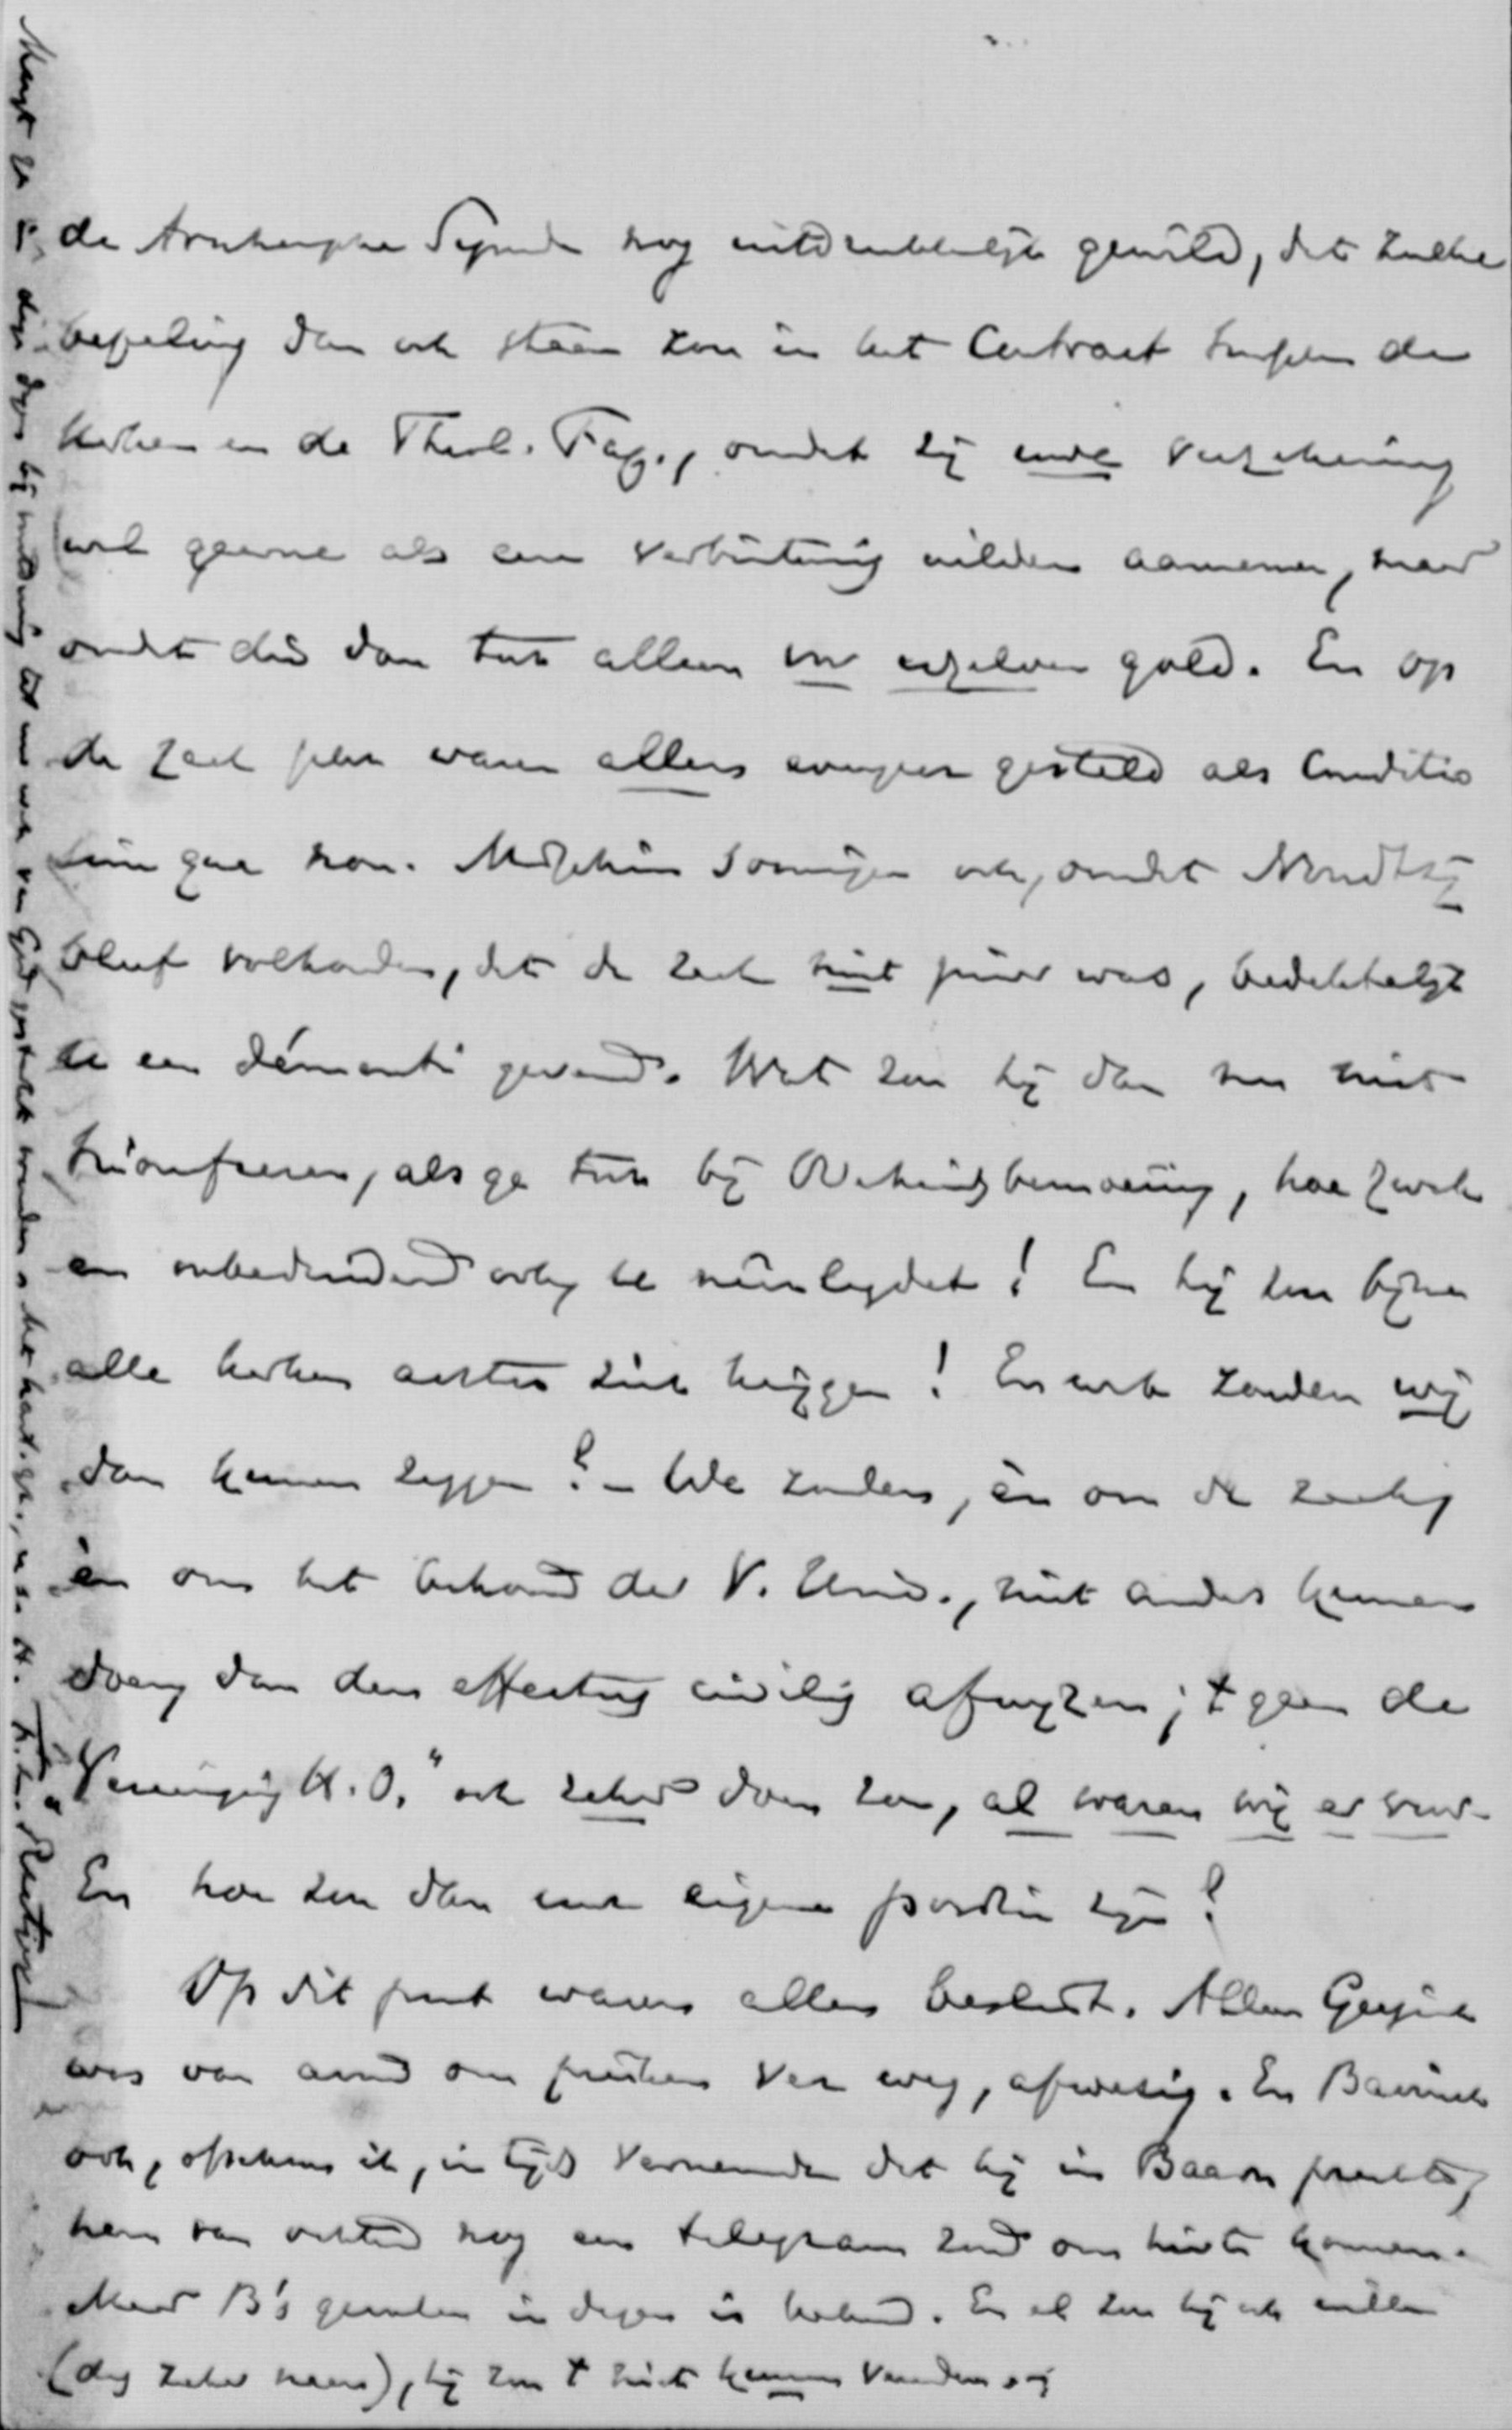 de Arnhemsche Synode nog uitdrukkelijk gewild, dat zulke
bepaling dan ook staan zou in het Contract tusschen de
kerken en de Theol. Fac., omdat zij onze verzekering
wel gaarne als eene verbintenis wilden aannemen, maar
omdat die dan toch alleen voor onszelven gold. En op
de zaak zelve waren allen evenzeer gesteld als conditio
sine qua non. Misschien sommigen ook, omdat Noordtzij
bleef volhouden, dat de zaak niet zuiver was, bedektelijk
te een démenti gevend. Wat zou hij dan nu niet
triomfeeren, als ge toch bij Overheidsbemoeiing, hoe zwak
en onbeduidend ook, te neerlegdet! En hij zou bijna
alle kerken achter zich krijgen! En wat zouden wij
dan kunnen zeggen? – We zouden, èn om de zaak,
èn om het behoud der V. Univ., niet anders kunnen
doen, dan den effectus civilis afwijzen; 't geen de
Vereeniging H.O." ook zeker doen zou, al waren wij er voor.
En hoe zou dan onze eigene positie zijn?
Op dit punt waren allen beslist. Alleen Geesink
was van avond om preeken ver weg, afwezig. En Bavinck
ook, ofschoon ik, in tijds vernemende dat hij in Baarn preekte,
hem van ochtend nog een telegram zond om hier te komen.
Maar B's gevoelen in dezen is bekend. En al zou hij ook willen
(des zeker neen), hij zou 't niet kunnen